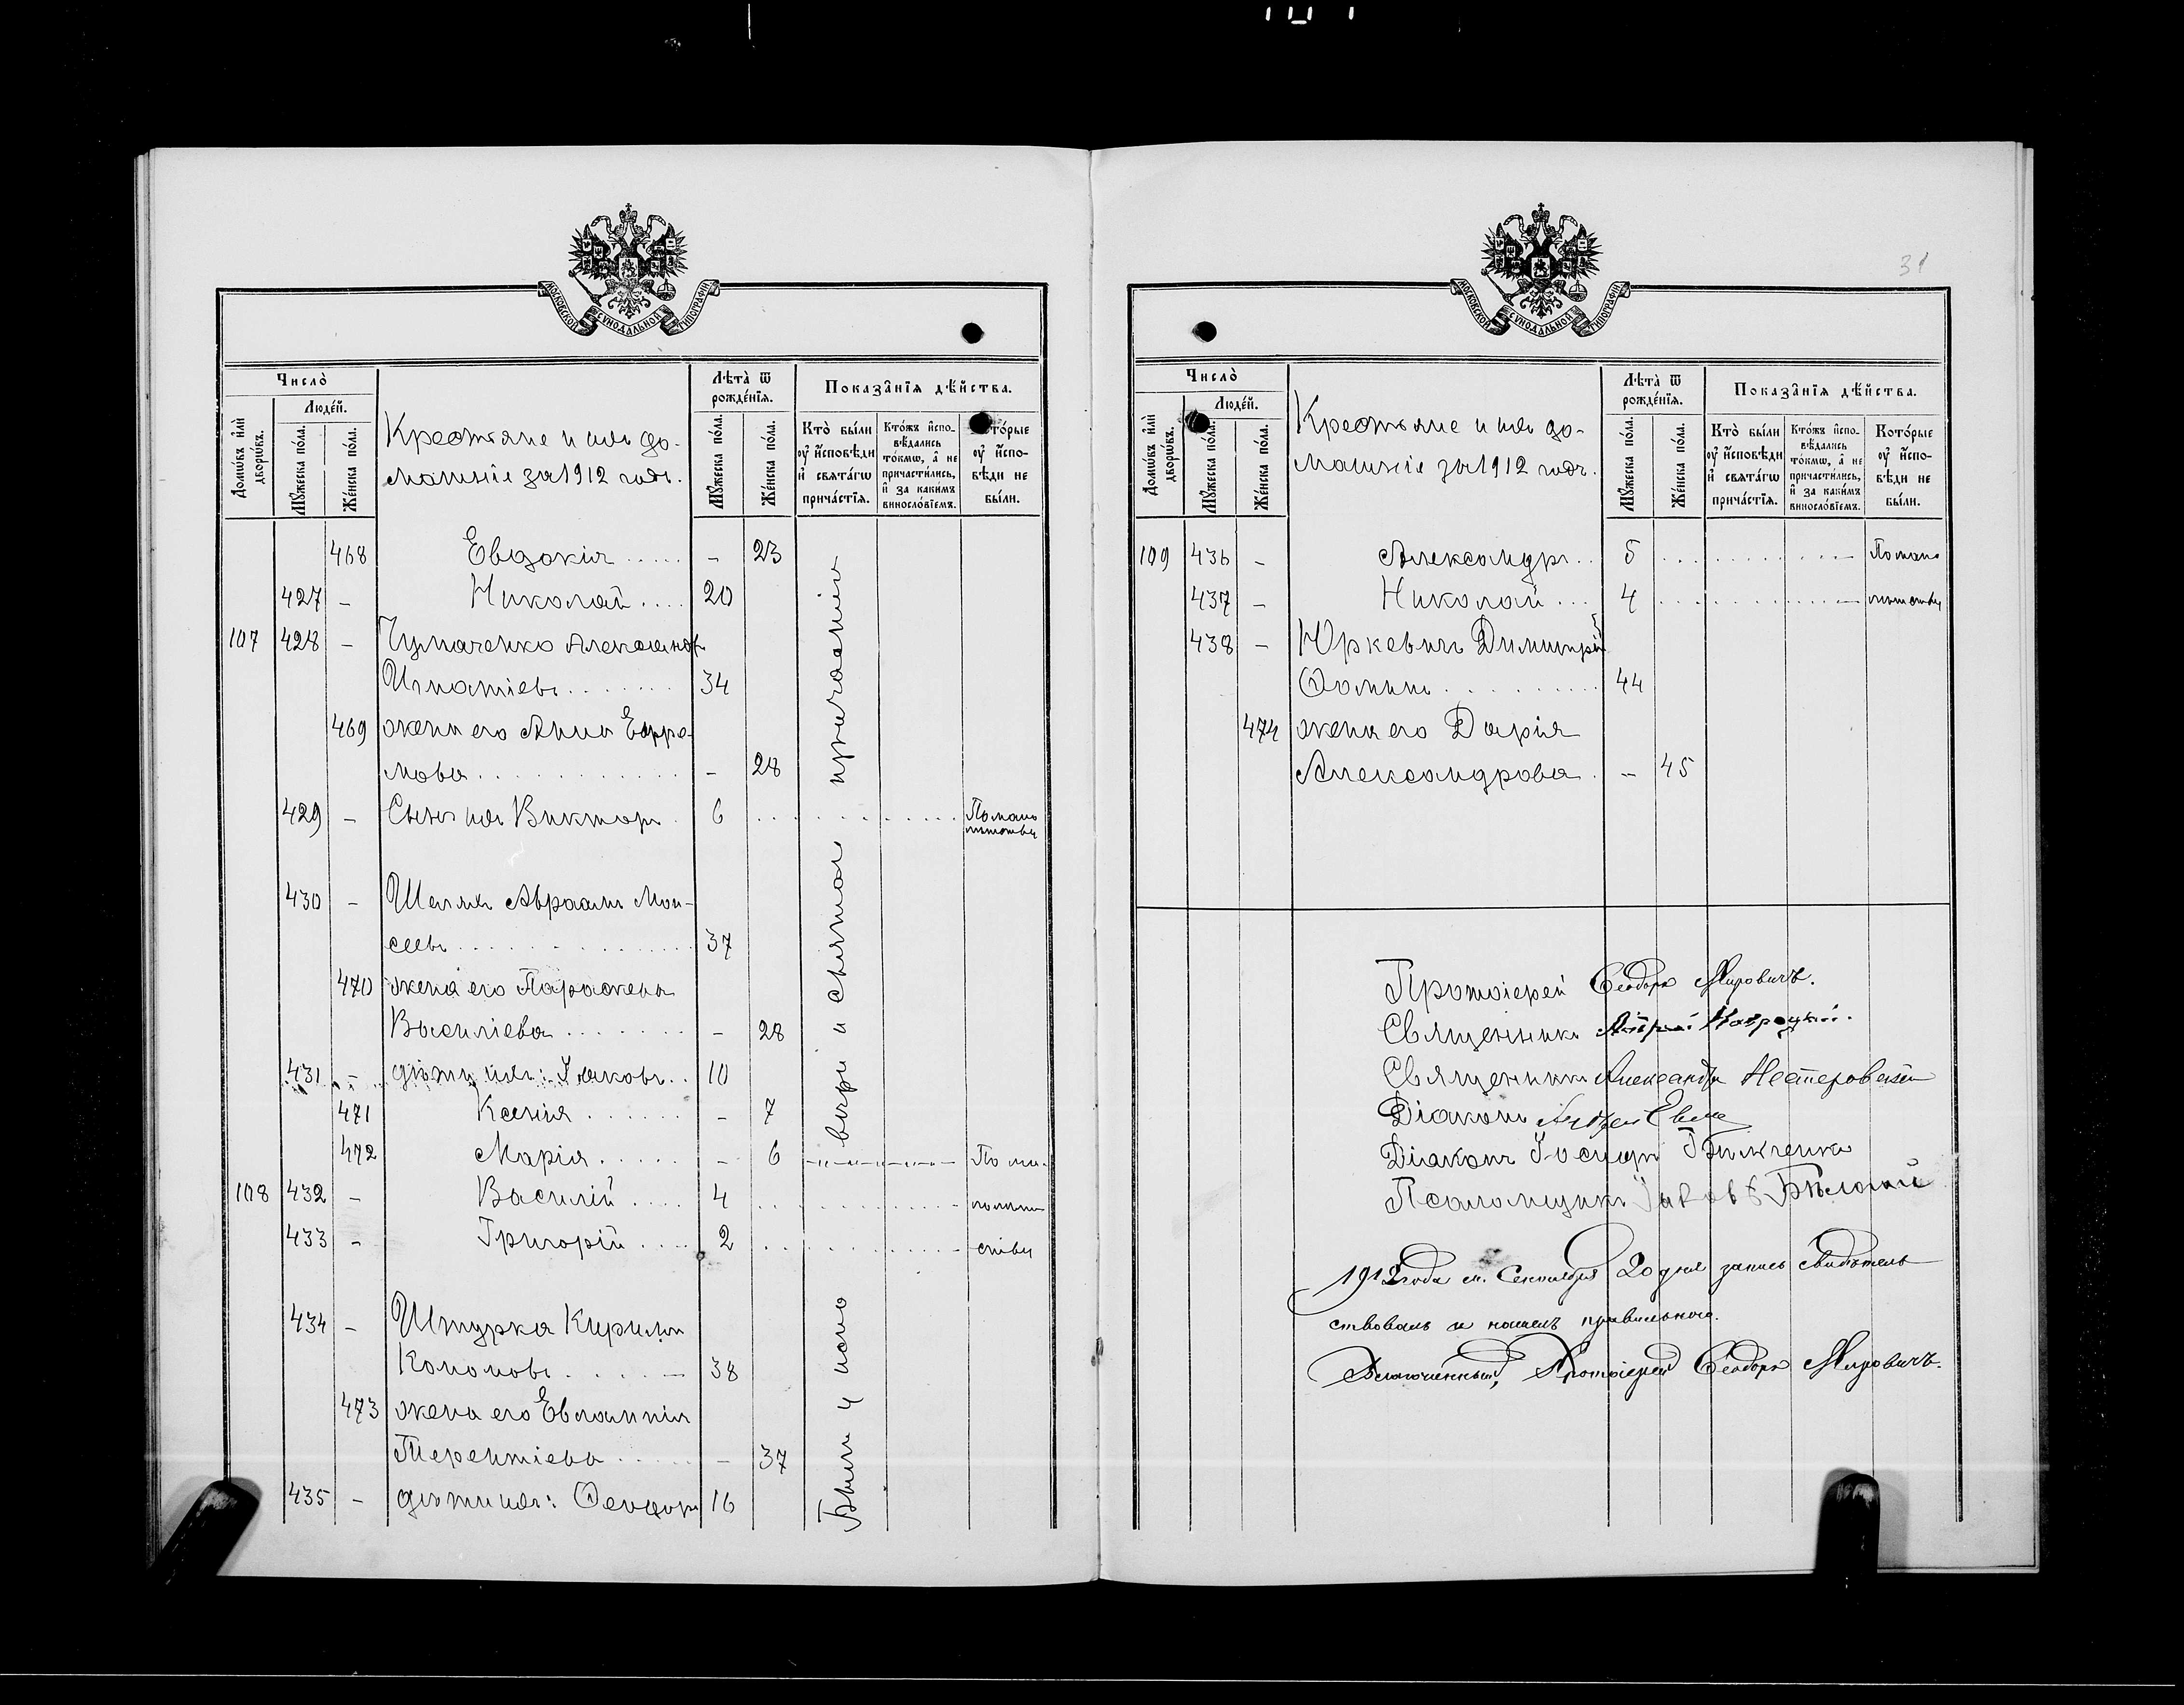 МОСКОВСКОЙ СУНОДАЛЬНОЙ ТИПОГРАФІИ
Число̀
Людéй.
Домѡ́въ и҆лѝ дворѡ́въ.
Мꙋ́жеска по́ла.
Же́нска по́ла.
Крестьяне и ихъ до-
машніе за 1912 годъ.
Лѣта̀ ѿ рожде́нїѧ.
Мꙋ́жеска по́ла.
Же́нска по́ла.
Показа̑нїѧ дѣ́йства.
Кто̀ бы́ли ᲂу҆ и҆сповѣ́ди и҆ свѧта́гѡ прича́стїѧ.
Кто́жъ и҆спо-вѣ́дались то́кмѡ, а҆ не причасти́лись, и҆ за каки́мъ винослѡ́вїемъ.
Кото́рые ᲂу҆ и҆спо-вѣ́ди не бы́ли.
468 Евдокія ..... - 23
427 - Николай .... 20
107 428 - Чумаченко Александръ
Игнатіевъ ....... 34
469 жена его Анна Ефре-
мова ............ - 28
429 - Сынъ ихъ Викторъ . 6 .......... По мало
лѣтству
430 - Авраамъ Мои-
сеевъ ............... 37
470 жена его Параскева
Василіева ....... - 28
431 - дѣти ихъ: Іаковъ .. 10
471 Ксенія ...... - 7
472 Марія ..... - 6 По ма-
108 432 - Василій .... 4 .......... лолѣт-
433 - Григорій .... 2 .......... ству
434 - Штурка Кириллъ
Кононовъ ..... 38
473 жена его Евлампія
Терентіева ..... - 37
435 - дѣти ихъ: Ѳеодоръ 16
Были у испо
вѣди и святаго причастія
31
МОСКОВСКОЙ СУНОДАЛЬНОЙ ТИПОГРАФІИ
Число̀
Людéй.
Домѡ́въ и҆лѝ дворѡ́въ.
Мꙋ́жеска по́ла.
Же́нска по́ла.
Крестьяне и ихъ до-
машніе за 1912 годъ.
Лѣта̀ ѿ рожде́нїѧ.
Мꙋ́жеска по́ла.
Же́нска по́ла.
Показа̑нїѧ дѣ́йства.
Кто̀ бы́ли ᲂу҆ и҆сповѣ́ди и҆ свѧта́гѡ прича́стїѧ.
Кто́жъ и҆спо-вѣ́дались то́кмѡ, а҆ не причасти́лись, и҆ за каки́мъ винослѡ́вїемъ.
Кото́рые ᲂу҆ и҆спо-вѣ́ди не бы́ли.
109 436 - Александръ .. 5 .......... По мало
437 - Николай ... 4 .......... лѣтству
438 - Юркевичъ Димитрій
Ѳоминъ .......... 44
474 жена его Дарія
Александрова . - 45
Протоіерей Ѳеодоръ Мировичъ.
Священникъ Навроцкій.
Священникъ Александръ Нестеровскій
Діаконъ Андрей
Діаконъ Іосифъ
Псаломщикъ Іаковъ Бѣлый
1912 года м. Сентября 20 дня запись свидѣтель
ствовалъ и нашелъ правильною.
Благочинный, Протоіерей Ѳеодоръ Мировичъ.